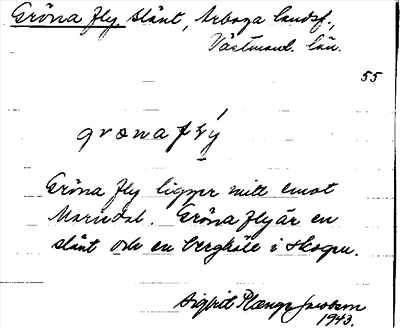 Gröna fly slänt, Arboga landsf.,
Västmanl. län.
55
grönafly
Gröna fly ligger mitt emot
Mariedal. Gröna fly är en
slänt och en berghäle i skogen.
Sigrid Plænge Jacobson
1943.